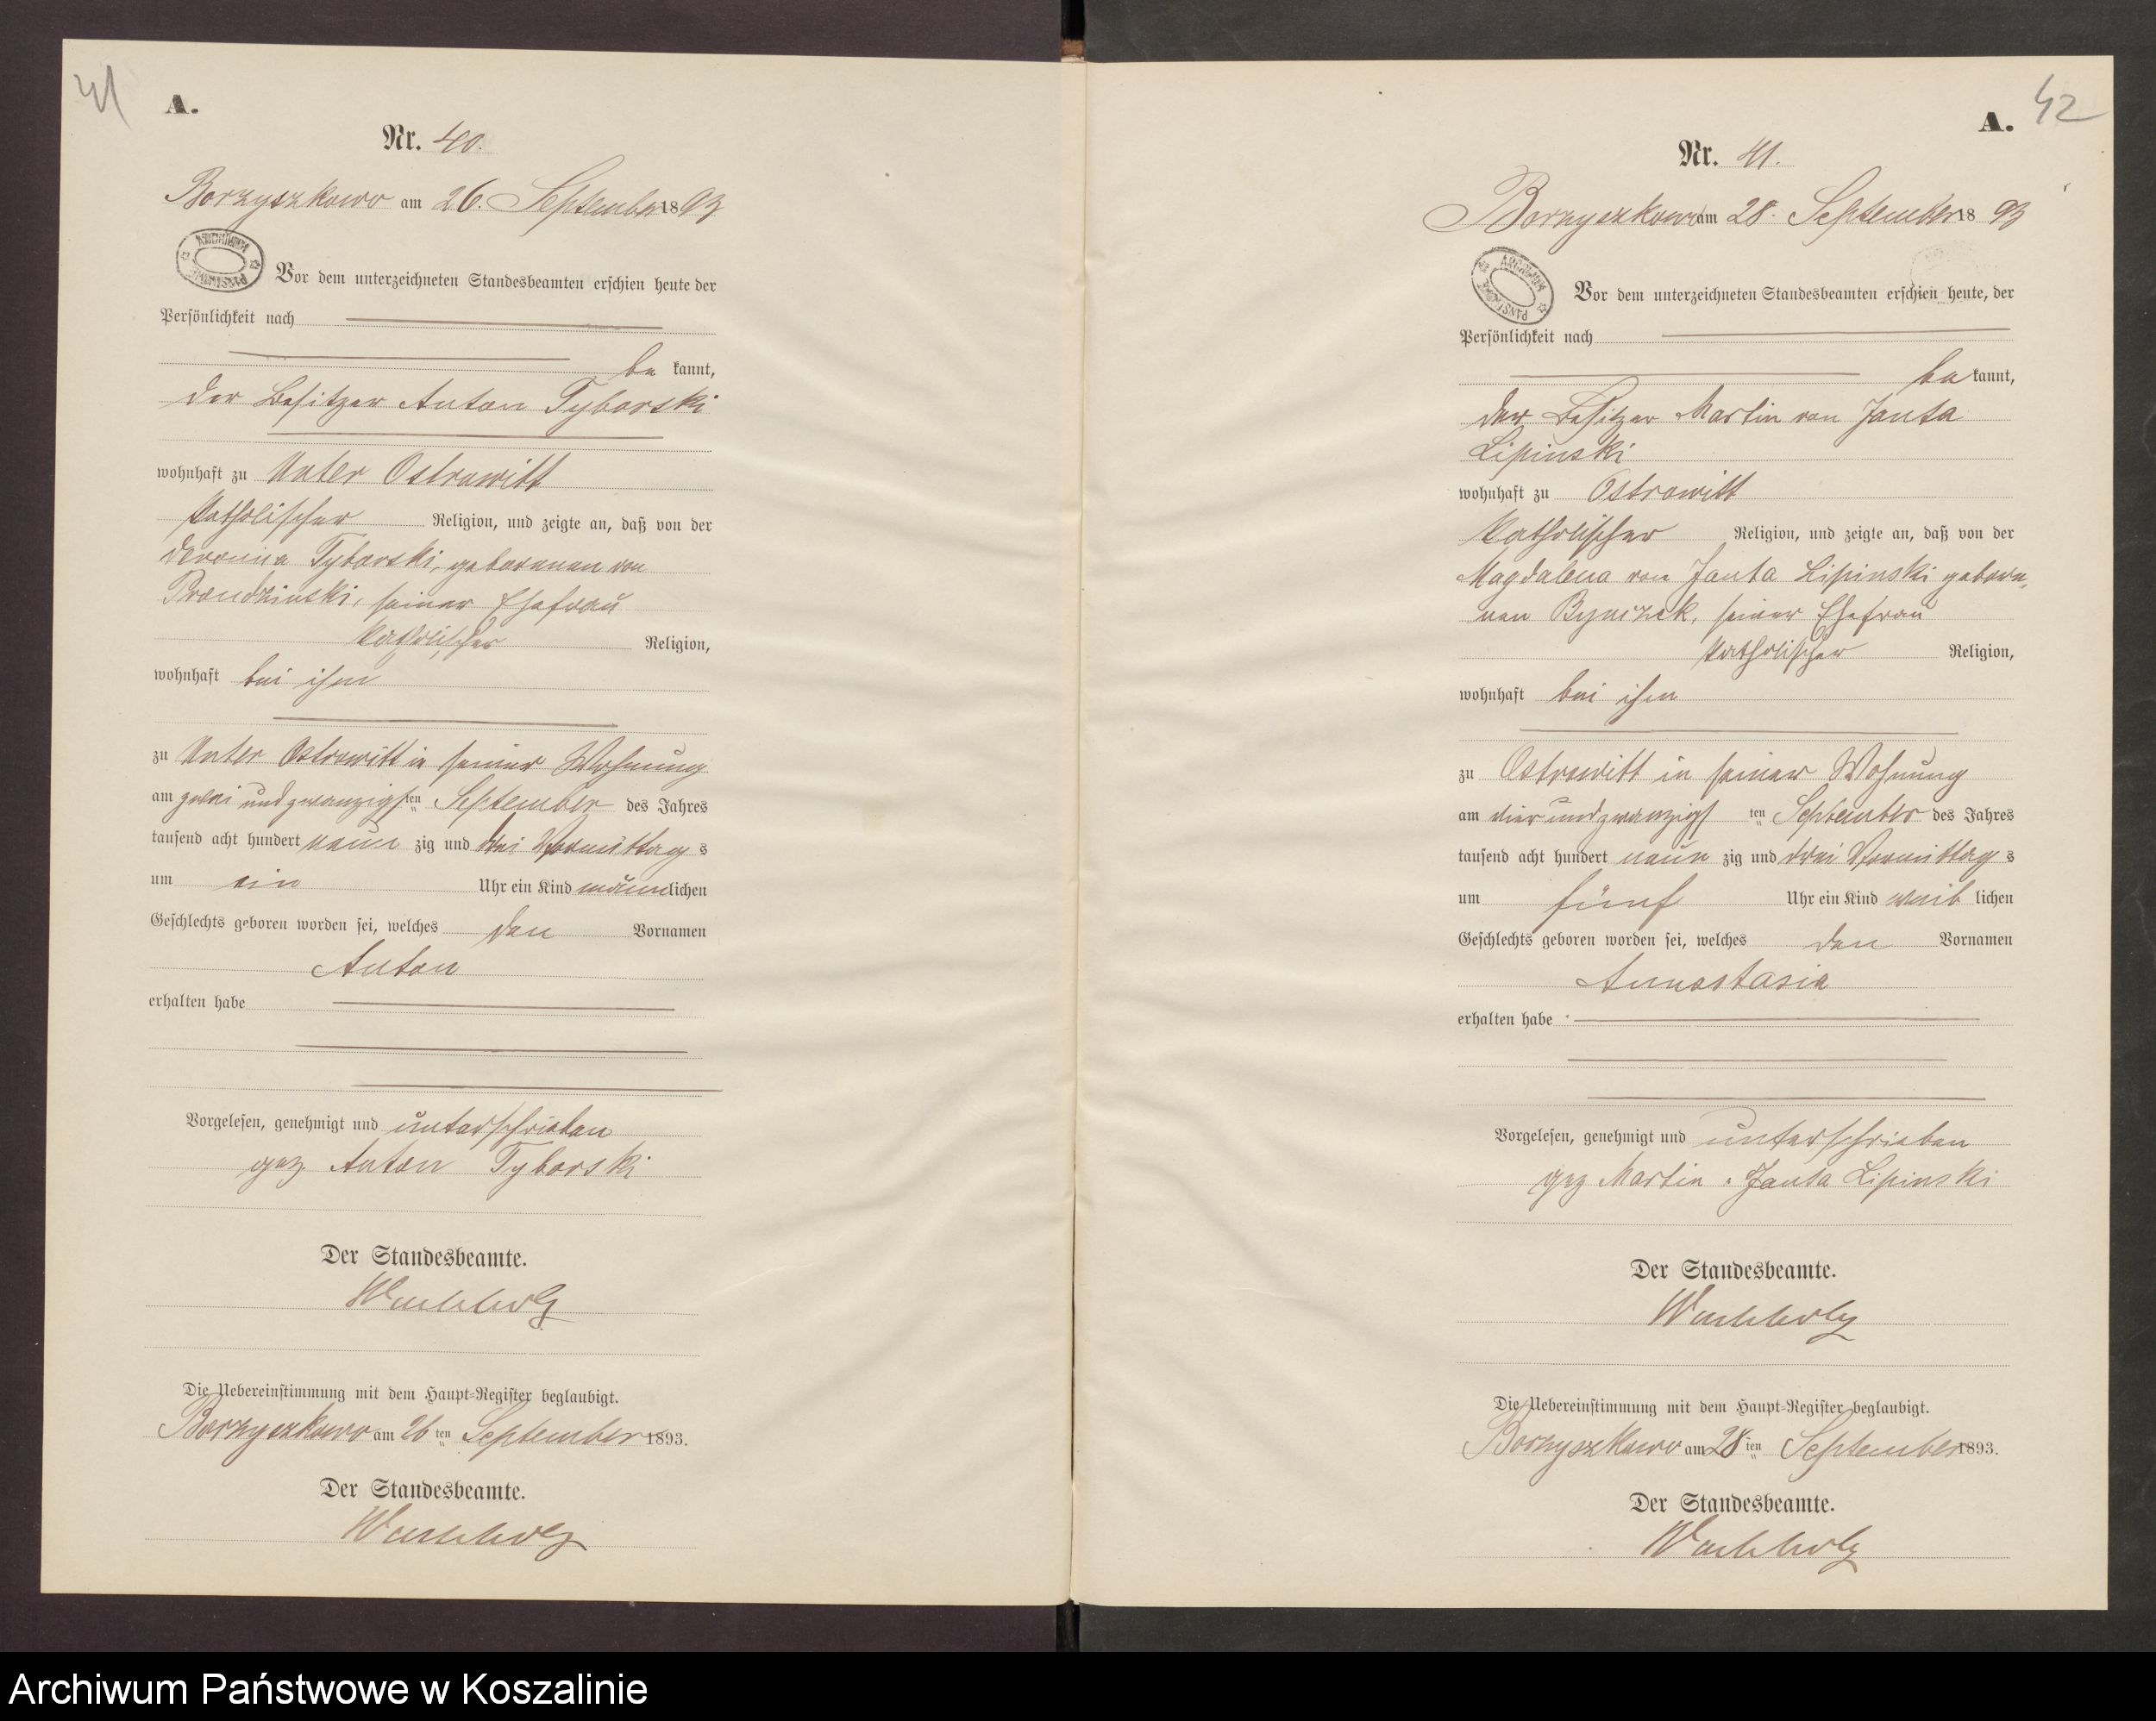 41
A.
Nr. 40.
Borzyszkowo am 26. September 1893
Vor dem unterzeichneten Standesbeamten erschien heute der
Persönlichkeit nach
be kannt,
der Besitzer Anton Tyborski
wohnhaft zu Unter Ostrowitt
katholischer Religion, und zeigte an, daß von der
Veronica Tyborski, geborenen von
Prondzinski, seiner Ehefrau
katholischer Religion,
wohnhaft bei ihm
zu Unter Ostrowitt in seiner Wohnung
am zwei und zwanzigsten September des Jahres
tausend acht hundert neun zig und drei Vormittags
um ein Uhr ein Kind männlichen
Geschlechts geboren worden sei, welches den Vornamen
Anton
erhalten habe
Vorgelesen, genehmigt und unterschrieben
gez Anton Tyborski
Der Standesbeamte.
Wachholz
Die Uebereinstimmung mit dem Haupt-Register beglaubigt.
Borzyszkowo am 26ten September 1893.
Der Standesbeamte.
Wachholz
42
A.
Nr. 41.
Borzyszkowo am 28. September 1893
ARCHIWUM PAŃSTWOWE
Vor dem unterzeichneten Standesbeamten erschien heute, der
Persönlichkeit nach
be kannt,
der Besitzer Martin von Janta
Lipinski
wohnhaft zu Ostrowitt
katholischer Religion, und zeigte an, daß von der
Magdalena von Janta Lipinski gebore-
nen seiner Ehefrau
katholischer Religion,
wohnhaft bei ihm
zu Ostrowitt in seiner Wohnung
am vier und zwanzigsten September des Jahres
tausend acht hundert neun zig und drei Vormittags
um fünf Uhr ein Kind weiblichen
Geschlechts geboren worden sei, welches den Vornamen
Annastasia
erhalten habe
Vorgelesen, genehmigt und unterschrieben
gez Martin v. Janta Lipinski
Der Standesbeamte.
Wachholz
Die Uebereinstimmung mit dem Haupt-Register beglaubigt.
Borzyszkowo am 28ten September 1893.
Der Standesbeamte.
Wachholz
Archiwum Państwowe w Koszalinie